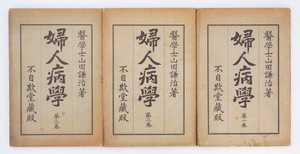 醫學士山田謙治著
婦人病學
不自欺堂藏版
醫學士山田謙治著
婦人病學
不自欺堂藏版
醫學士山田謙治著
婦人病學
不自欺堂藏版